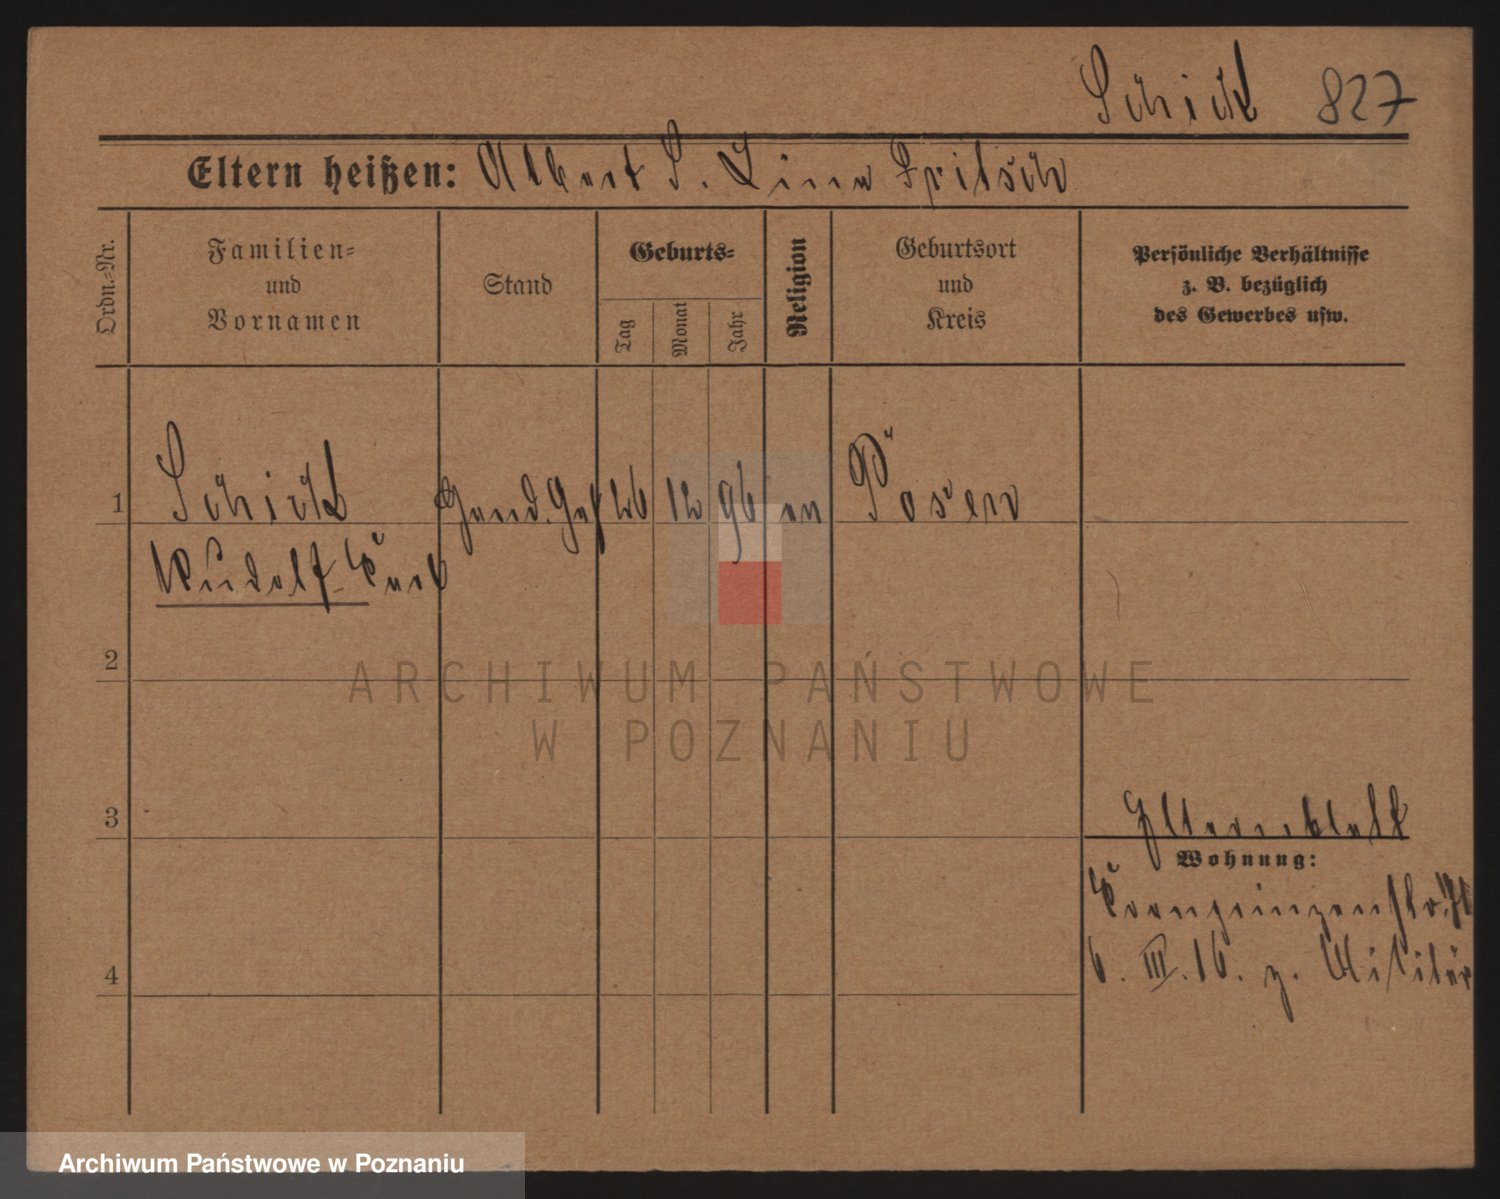 Schick 827
Eltern heißen: Albert S. Lina Fritsch
Ordn.-Nr.
Familien-
und
Vornamen
Stand
Geburts-
Tag
Monat
Jahr
Religion
Geburtsort
und
Kreis
Persönliche Verhältnisse
z. B. bezüglich
des Gewerbes usw.
1 Schick 26 12 96 ev Posen
Rudolf Kurt
2
3 Elternblatt
Wohnung:
Kronprinzenstr.
4 6. III. 16. z. Militär
ARCHIWUM PAŃSTWOWE
W POZNANIU
Archiwum Państwowe w Poznaniu